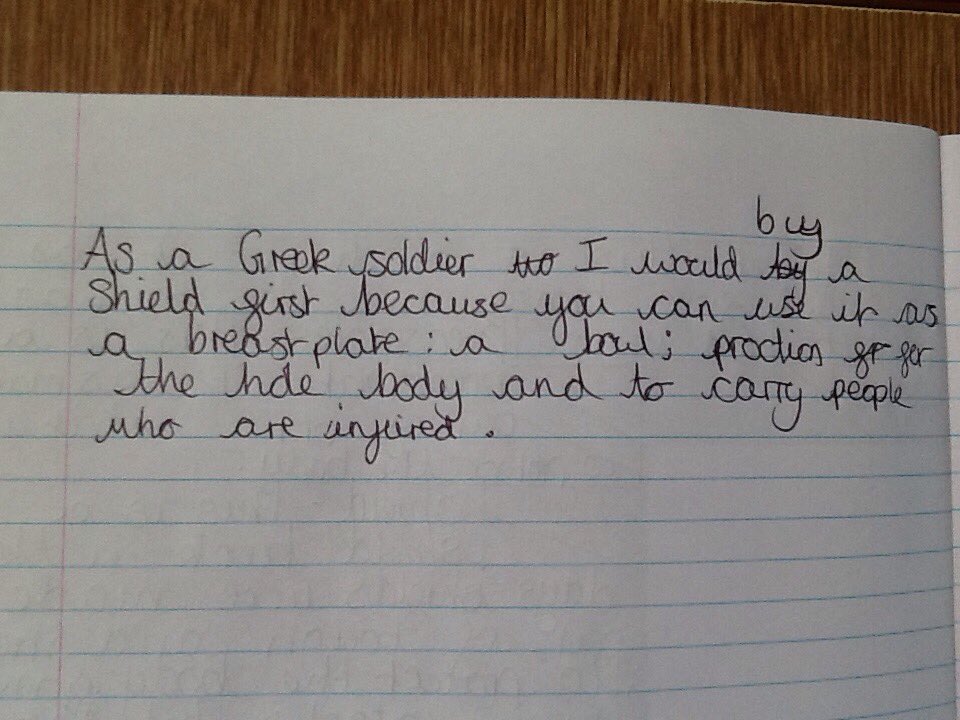 buy
As a Greek soldier I would a
Shield first because you can use it as
a breastplate: a boul; proction for
the hole body and to carry people
who are injured.